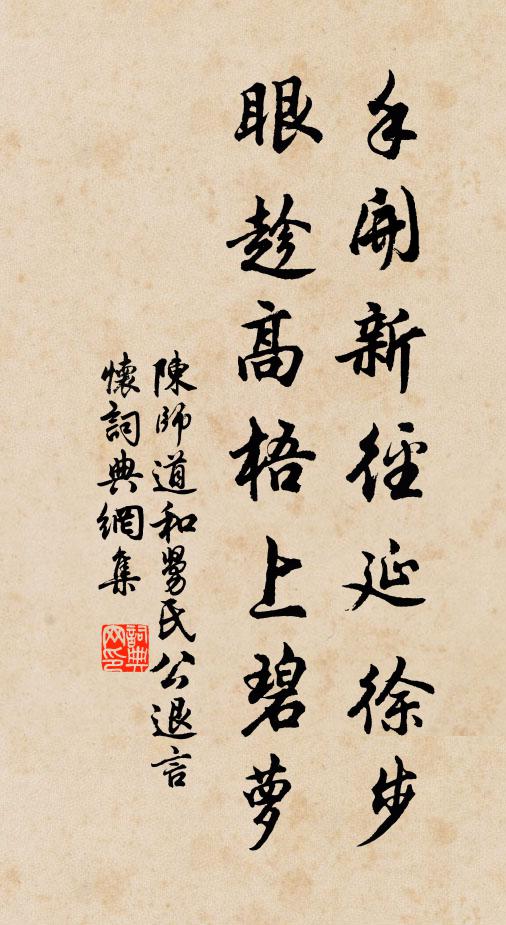 手開新徑延徐步
眼趁高梧上碧蘿
陳師道和勞氏公退言
懷詞典網集
詞典網印